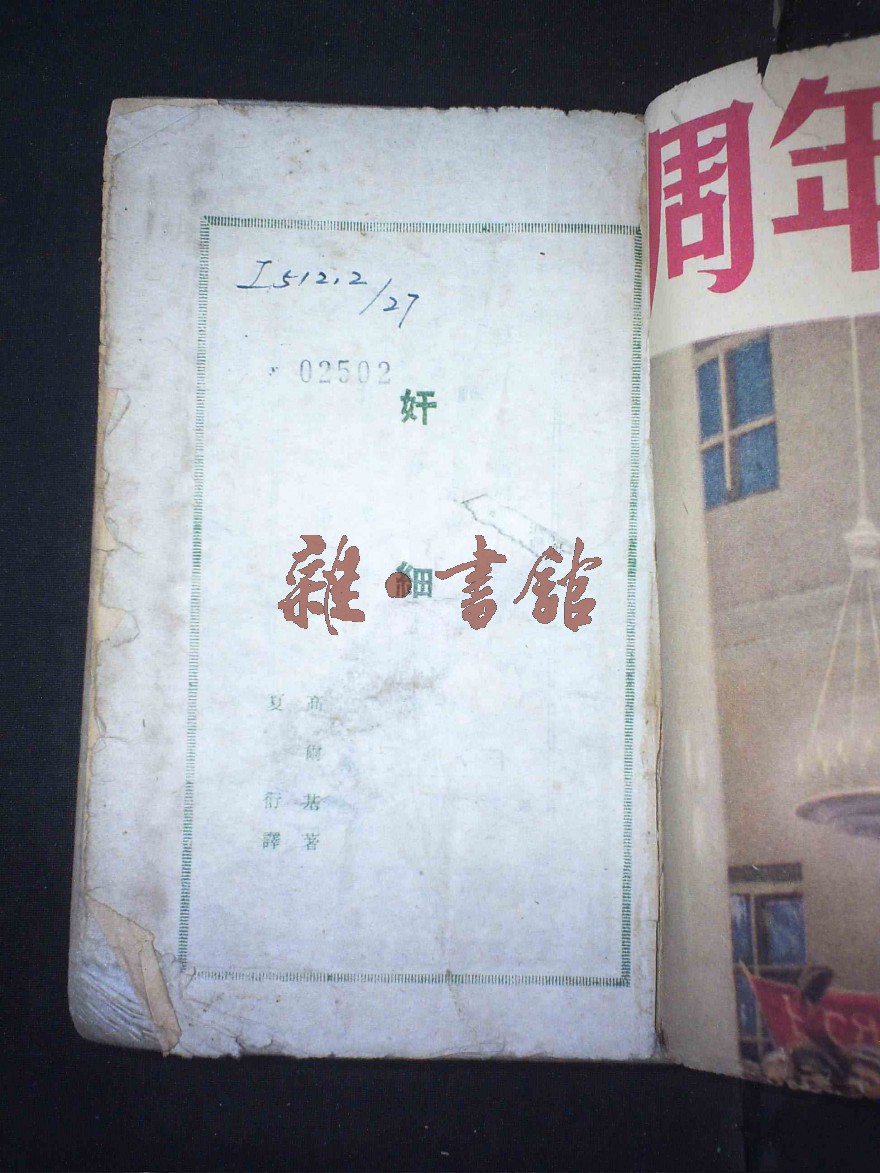 I512.2/27
02502
奸細
雜·書館
高爾基著
夏衍譯
周年